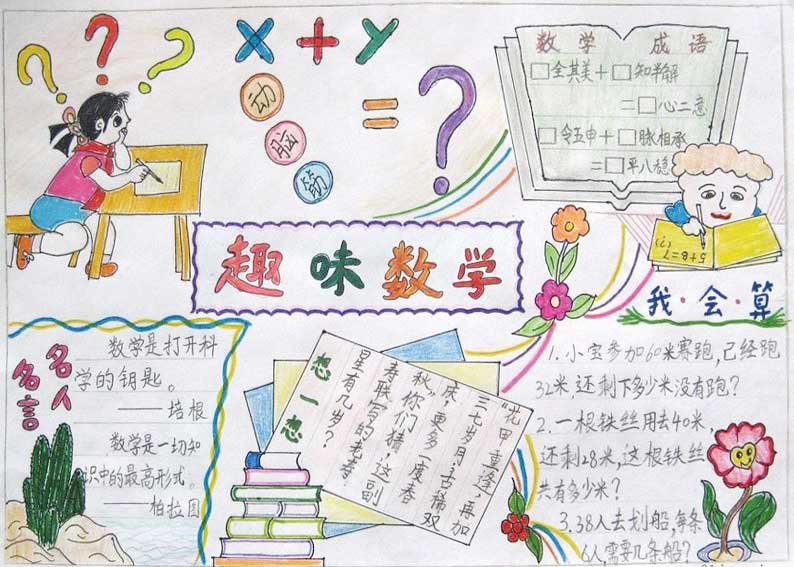 ? ? ?
x + y
= ?
动
脑
筋
数学 成语
□全其美+□知半解
=□心二意
□令五申+□脉相承
=□平八稳
趣味数学
我·会·算
名人名言
数学是打开科
学的钥匙。
——培根
数学是一切知
识中的最高形式。
——柏拉图
想一想
“花甲重逢,再加
三七岁月;古稀双
庆,更多一度春
秋。”你们猜,这副
春联写的老寿
星有几岁?
1.小宝参加60米赛跑,已经跑
32米,还剩下多少米没有跑?
2.一根铁丝用去40米,
还剩28米,这根铁丝
共有多少米?
3.38人去划船,每条
6人,需要几条船?